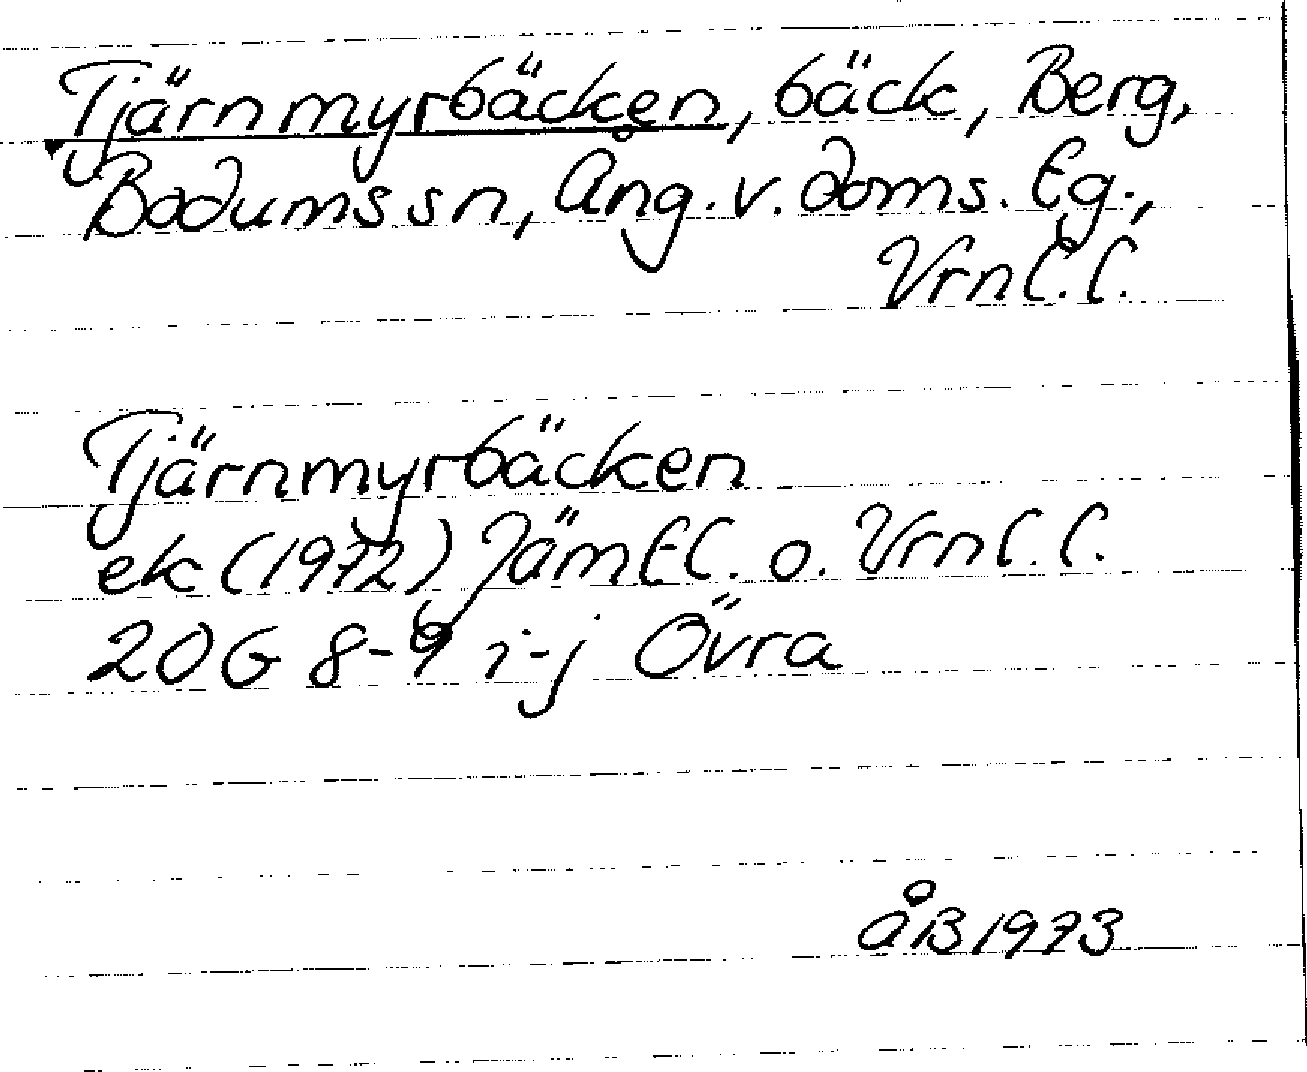 Tjärnmyrbäcken, bäck, Berg,
Bodums sn, Ång. v. doms. Eg.,
Vrnl.l.
Tjärnmyrbäcken
ek (1972) Jämtl. o. Vrnl.l.
20G 8-9 i-j Övra
ÅB 1973